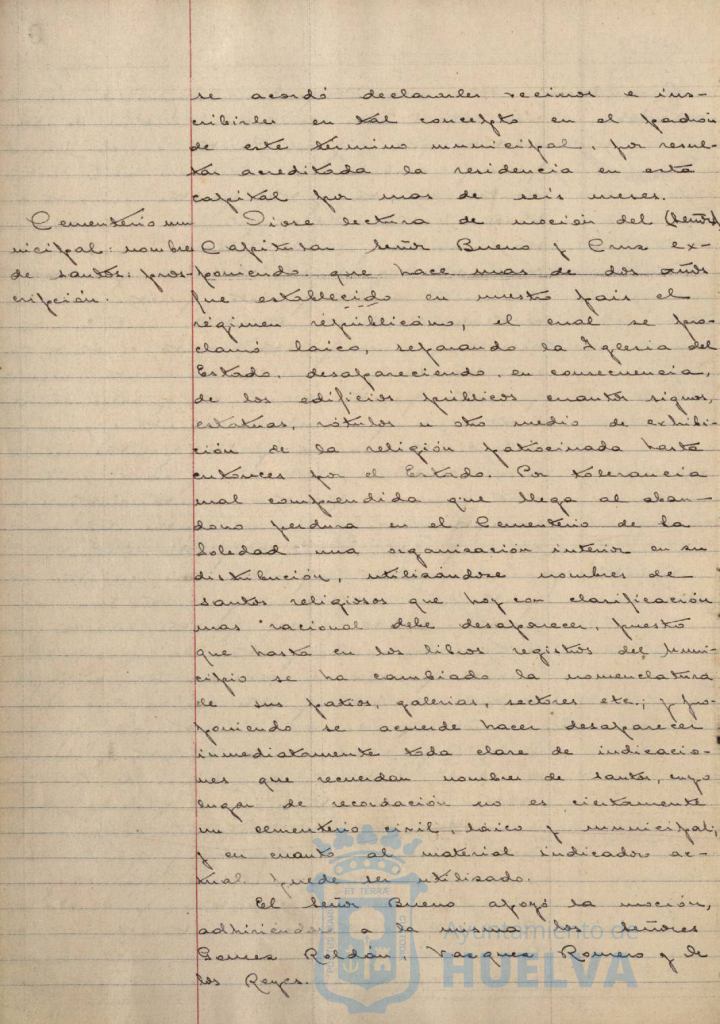 se acordó declararles vecinos e ins-
cribirles en tal concepto en el padrón
de este término municipal, por resul-
tar acreditada la residencia en esta
capital por mas de seis meses.
Cementerio mu
nicipal: nombre
de santos: pros-
cripción.
Diose lectura de moción del (señor)
Capitular Señor Bueno y Cruz ex-
poniendo que hace mas de dos años
fue establecido en nuestro pais el
régimen républicáno, el cual se pro-
clamó laico, separando la Iglesia del
Estado, desapareciendo en consecuencia,
de los edificios públicos cuantos signos,
estatuas, rótulos u otro medio de exhibi-
ción de la religión patrocinada hasta
entonces por el Estado. Por tolerancia
mal comprendida que llega al aban-
dono perdura en el Cementerio de la
Soledad una organización interior en su
distribución, utilizándose nombres de
santos religiosos que hoy con clarificación
mas racional debe desaparecer, puesto
que hasta en los libros registros del Muni-
cipio se ha cambiado la nomenclatura
de sus patios, galerias, sectores etc.; y pro-
poniendo se acuerde hacer desaparecer
inmediatamente toda clase de indicacio-
nes que recuerdan nombres de santos, cuyo
lugar de recordación no es ciertamente
un cementerio civil, laico y municipal,
y en cuanto al material indicador ac-
tual puede ser utilizado.
El Señor Bueno apoyó la moción,
adhiriendose a la misma los Señores
Gomez Roldán, Vazquez Romero y de
los Reyes.
Ayuntamiento de
HUELVA